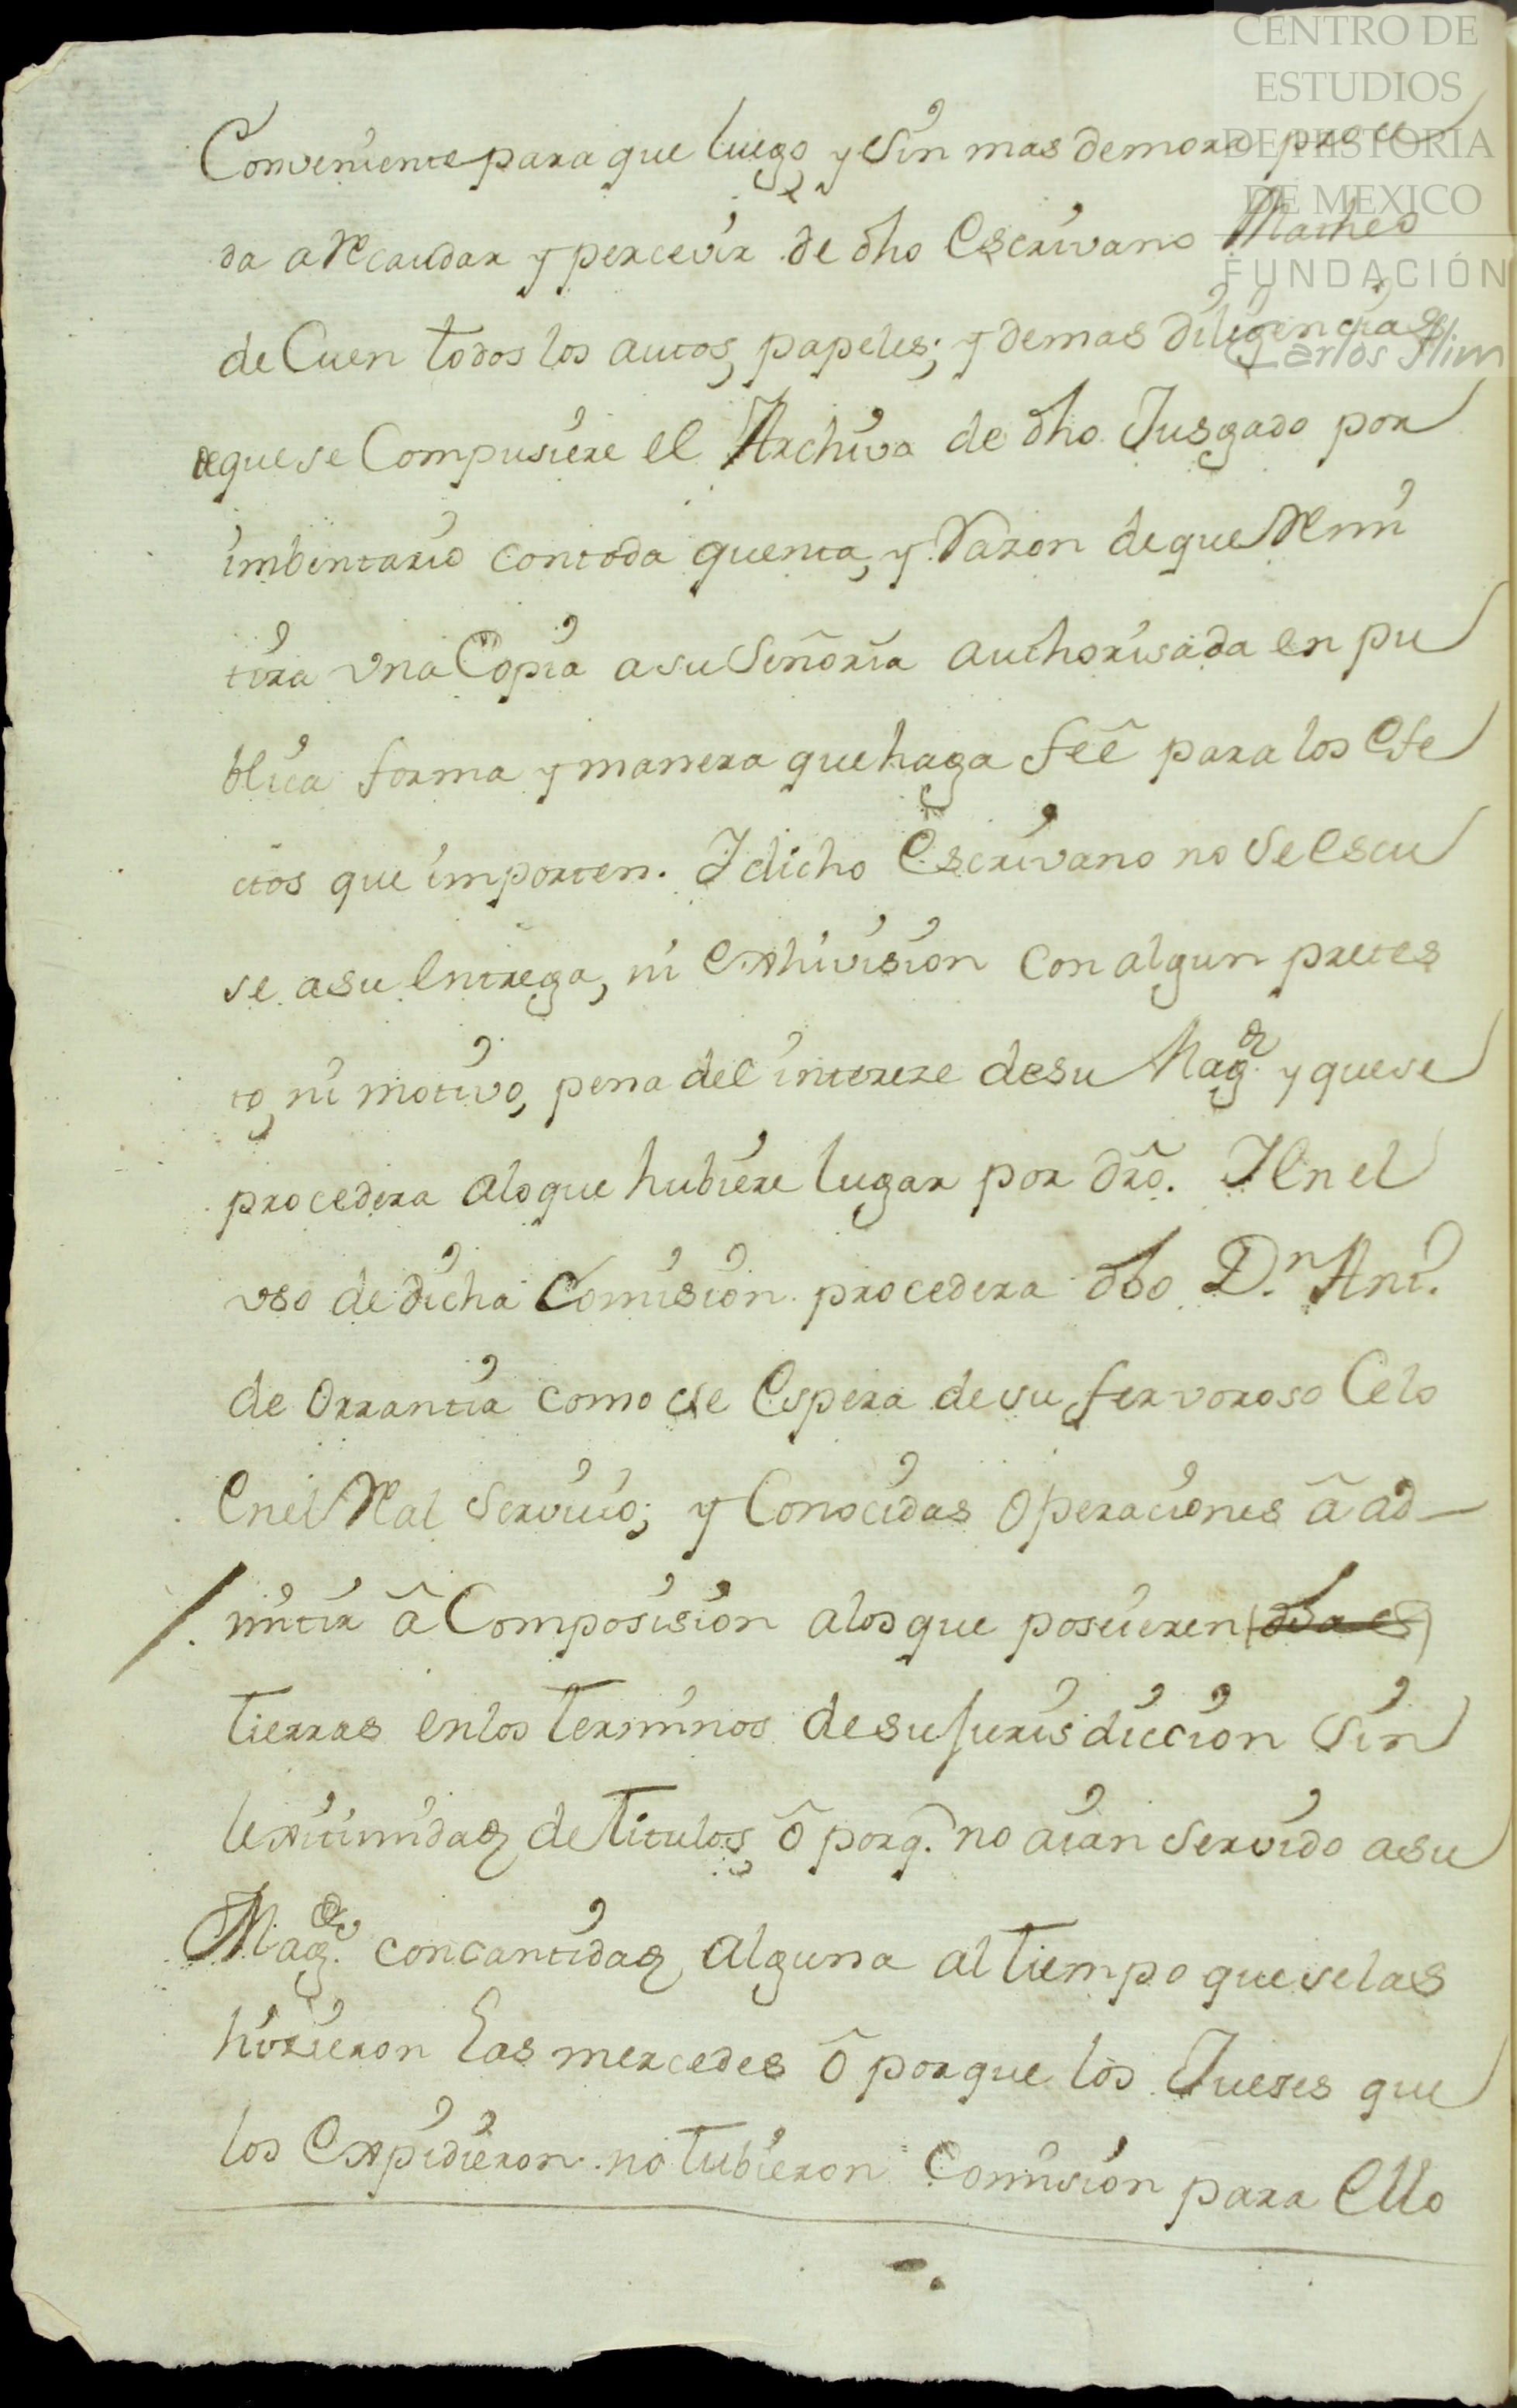 CENTRO DE
ESTUDIOS
DE HISTORIA
DE MEXICO
FUNDACIÓN
Carlos Slim
Conveniente para que luego y Sin mas demora proce
da a Recaudar y percevir de dho Escrivano Matheo
de Cuen todos los autos, papeles; y demas diligencias
de que se Compusiere el Archivo de dho Jusgado por
imbentario con toda quenta, y Razon de que Remi
tira una Copia a su Señoria authorisada en pu
blica forma y manera que haga feê para los efe
ctos que importen. I dicho Escrivano no se escu
se a su entrega, ni exhivision con algun pretes
to, ni motivo, pena del intereze de su Magd. y que se
procedera a lo que hubiere lugar por dro. I en el
uso de dicha Comision procedera dho Dn. Ant.
de Orrantia como se espera de su fervoroso Celo
en el Real Servicio; y Conocidas Operaciones â ad-
mitir â Composision a los que poseieren
tierras en los terminos de su jurisdiccion Sin
lexitimidad de titulos, ô porq. no aian servido a su
Magd. con cantidad alguna al tiempo que se las
hizieron las mercedes ô porque los Jueses que
los expidieron no tubieron Comision para ello